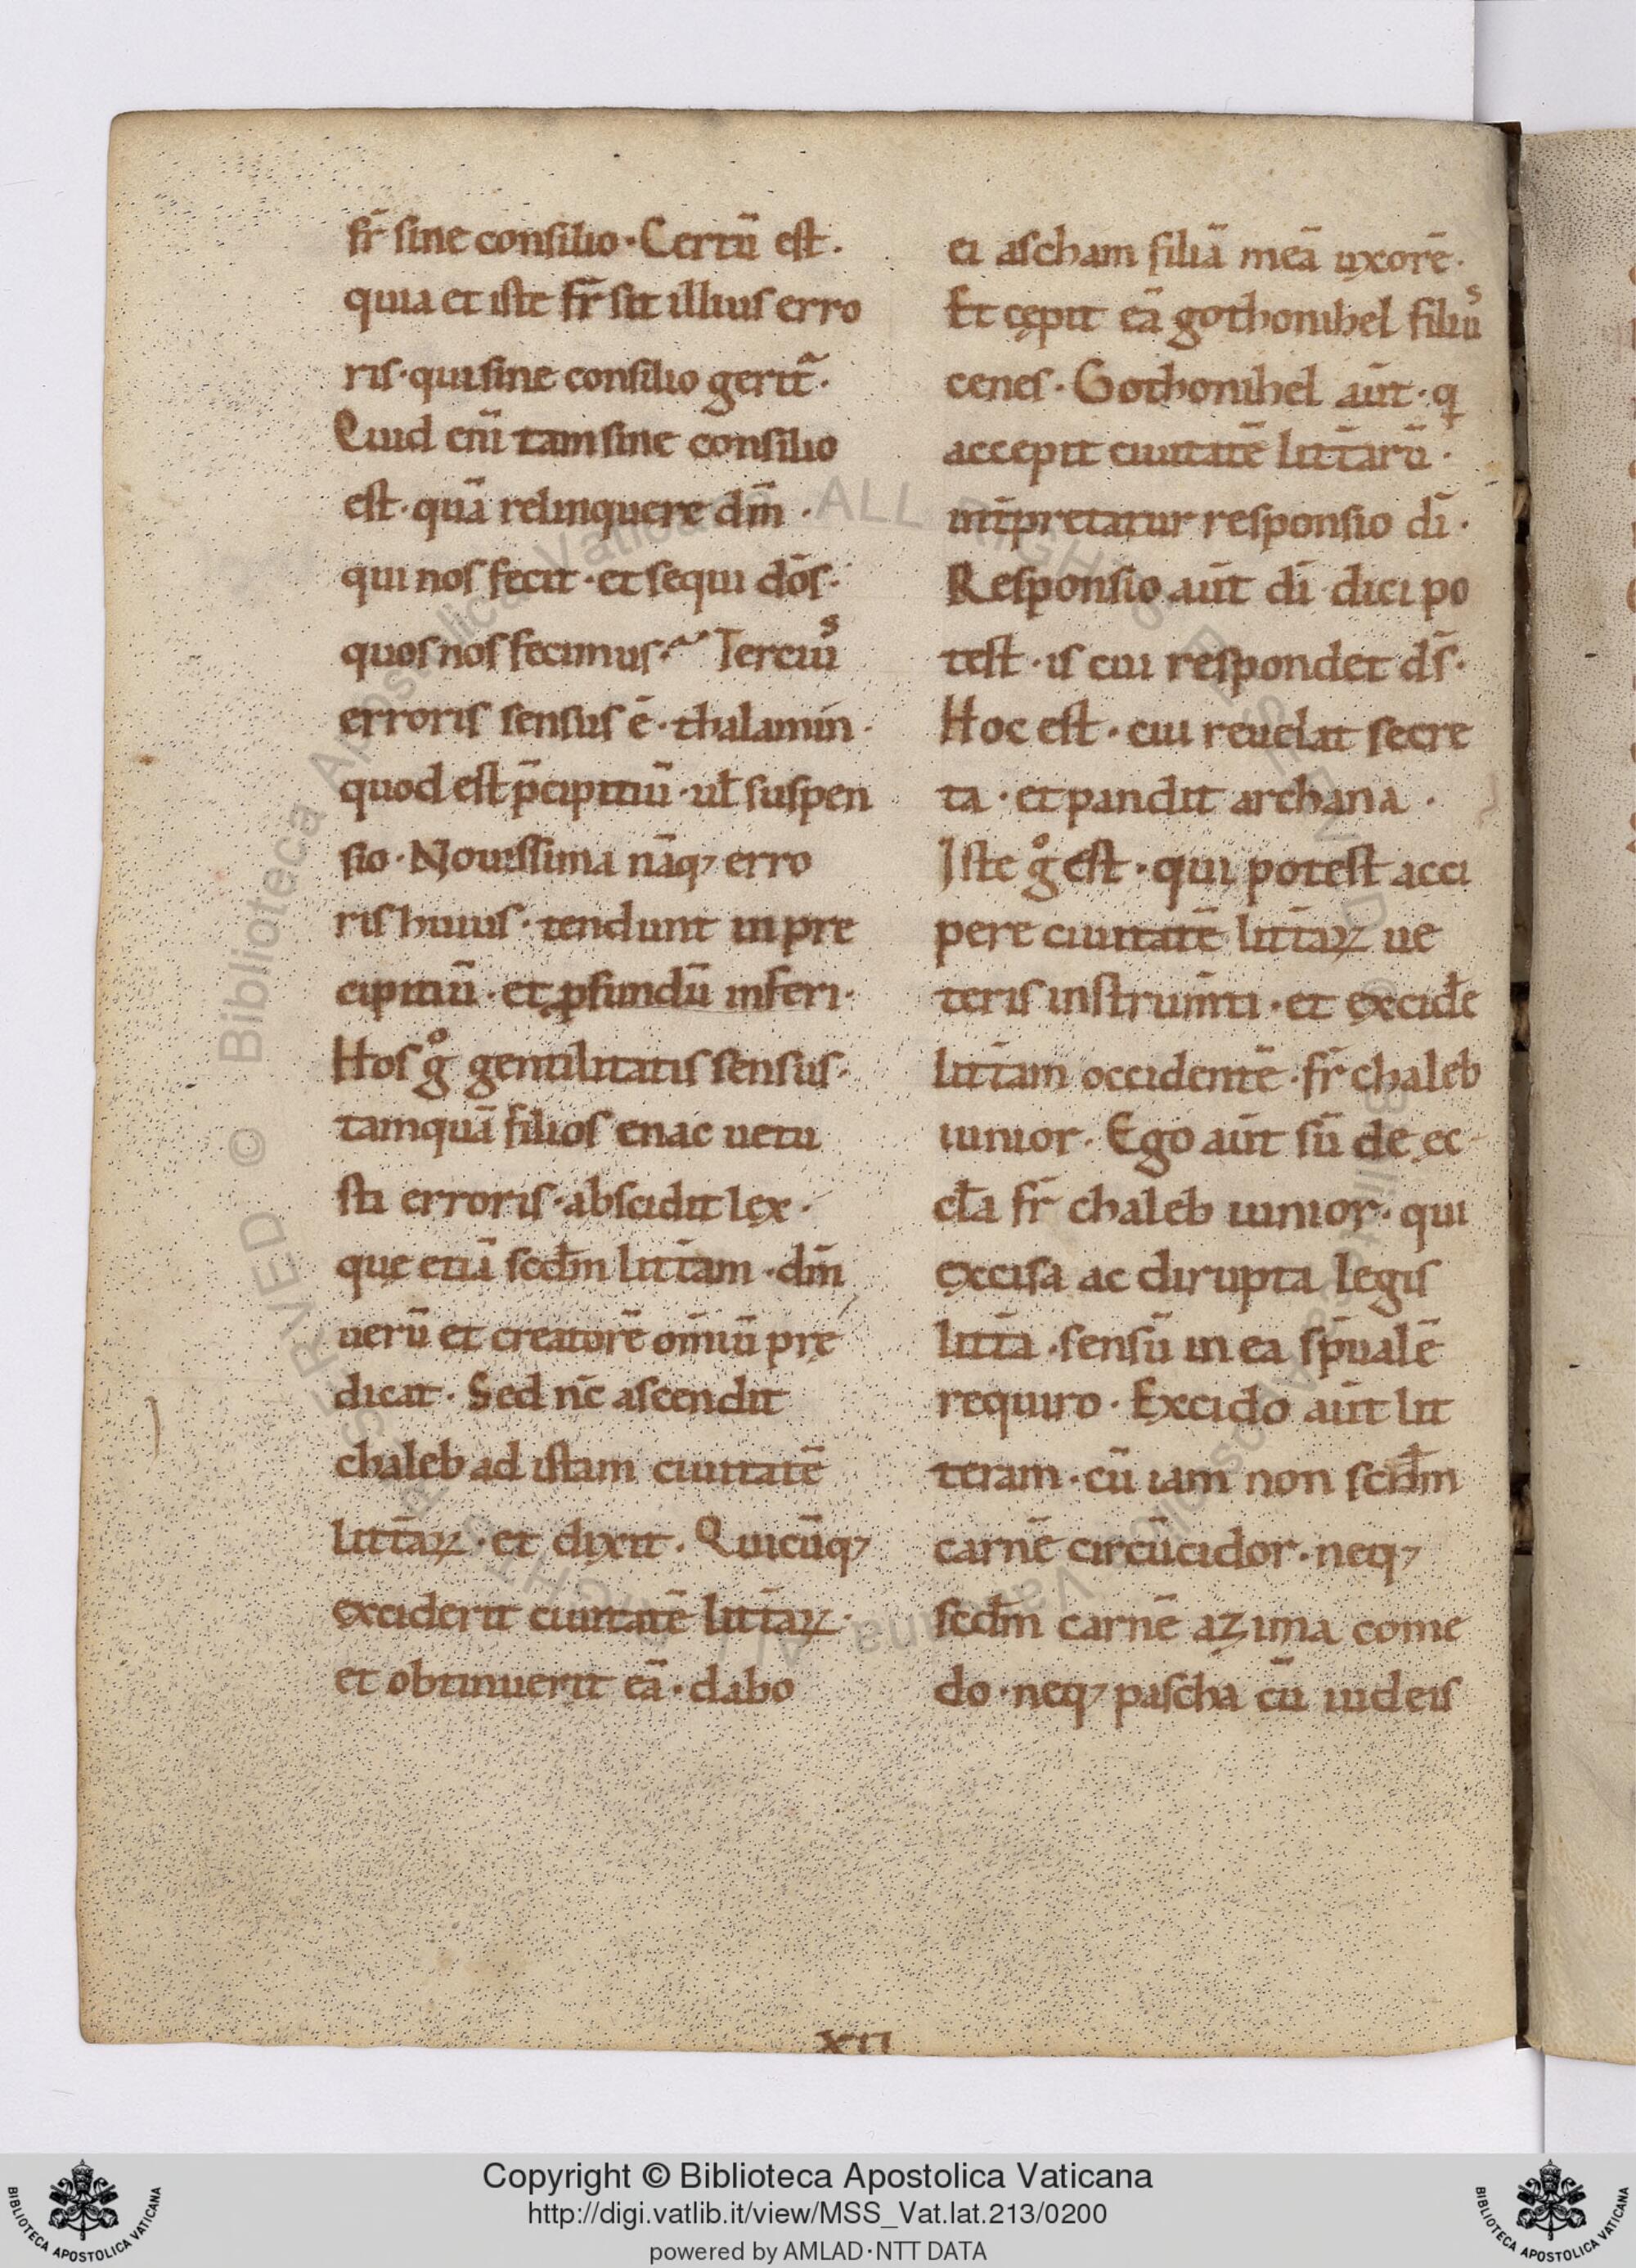 fr̄ sine consilio · Certū est ·
quia et iste fr̄ sit illius erro
ris · qui sine consilio gerit᷑ ·
Quid eni᷑ tam sine consilio
est · quā relinquere dm̄ ·
qui nos fecit · et sequi dōs ·
quos nos fecimus · Terciuˢ
erroris sensus ē · thalamin ·
quod est p̄cipitiū · ul̄ suspen
sio · Nouissima nāq; erro
ris huius · tendunt in pre
cipitiū · et ꝓfundū inferi ·
Hos gͦ gentilitatis sensus ·
tamquā filios enac uetu
sti erroris · abscidit lex ·
quę etiā scd̄m litt̄am · dm̄
uerū et creatorē om̄iū prę
dicat · Sed nc̄ ascendit
chaleb ad istam ciuitatē
litt̄aꝝ · et dixit · Quicūq;
exciderit ciuitatē litt̄aꝝ ·
et obtinuerit eā · dabo
ei ascham filiā meā uxorē ·
Et cępit eā gothonihel filiuˢ
cenes · Gothonihel aūt · q
accepit ciuitatē litt̄arū ·
int̄pretatur responsio dī ·
Responsio aūt dī dici po
test · is cui respondet ds̄ ·
Hoc est · cui reuelat secre
ta · et pandit archana ·
Iste gͦ est · qui potest acci
pere ciuitatē litt̄aꝝ ue
teris instrum̄ti · et excid̄e
litt̄am occidentē · fr̄ chaleb
iunior · Ego aūt sū de ęc
cl̄a fr̄ chaleb iunior · qui
excisa ac dirupta legis
litt̄a · sensū in ea sp̄ualē
requiro · Excido aūt lit
teram · cū iam non scd̄m
carnē circūcidor · neq;
scd̄m carnē azima come
do · neq; pascha cū iudeis
XII
Copyright © Biblioteca Apostolica Vaticana
http://digi.vatlib.it/view/MSS_Vat.lat.213/0200
powered by AMLAD·NTT DATA
BIBLIOTECA APOSTOLICA VATICANA
BIBLIOTECA APOSTOLICA VATICANA